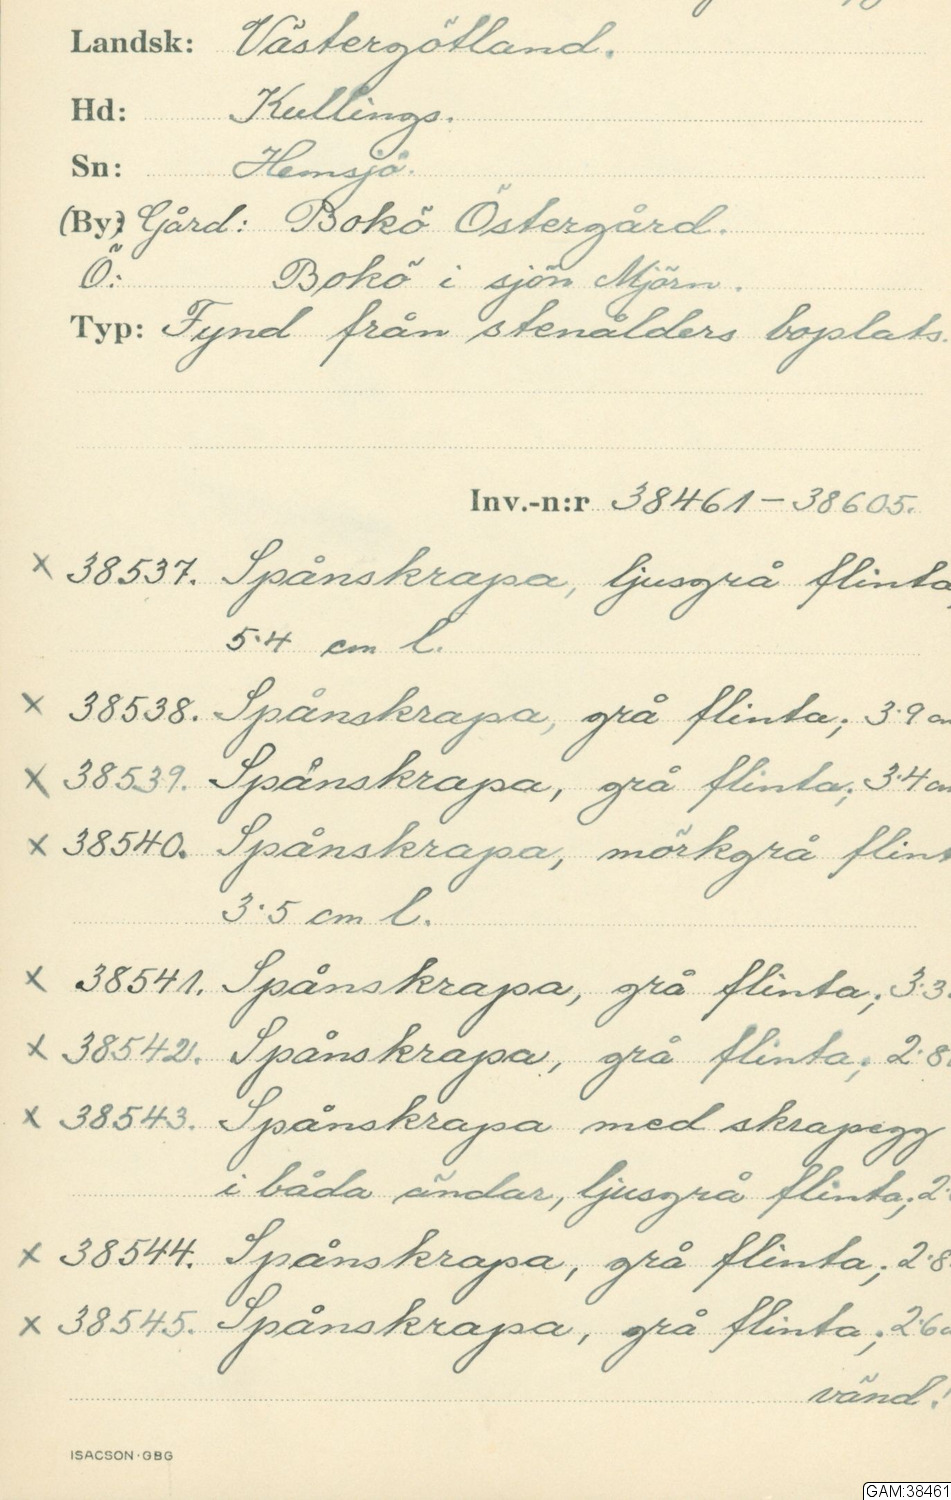 Landsk: Västergötland.
Hd: Kullings.
Sn: Hemsjö.
(By) Gård: Bokö Östergård.
Ö: Bokö i sjön Mjörn.
Typ: Fynd från stenålders boplats.
Inv.-n:r 38461-38605.
x 38537. Spånskrapa, ljusgrå flinta,
5.4 cm l.
x 38538. Spånskrapa, grå flinta; 3.9 cm
x 38539. Spånskrapa, grå flinta; 3.4 cm
x 38540. Spånskrapa, mörkgrå flint
3.5 cm l.
x 38541. Spånskrapa, grå flinta; 3.3
x 38542. Spånskrapa, grå flinta; 2.8
x 38543. Spånskrapa med skrapegg
i båda ändar, ljusgrå flinta; 2.
x 38544. Spånskrapa, grå flinta; 2.8
x 38545. Spånskrapa, grå flinta; 2.6
vänd!
ISACSON·GBG
GAM:38461